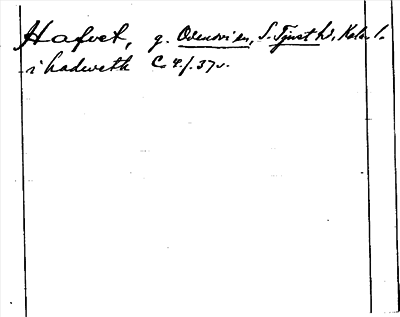 Hafvet, g. Odensvi sn, S. Tjust hd, Kalm. l.
i hadweth C 4 f. 37 v.